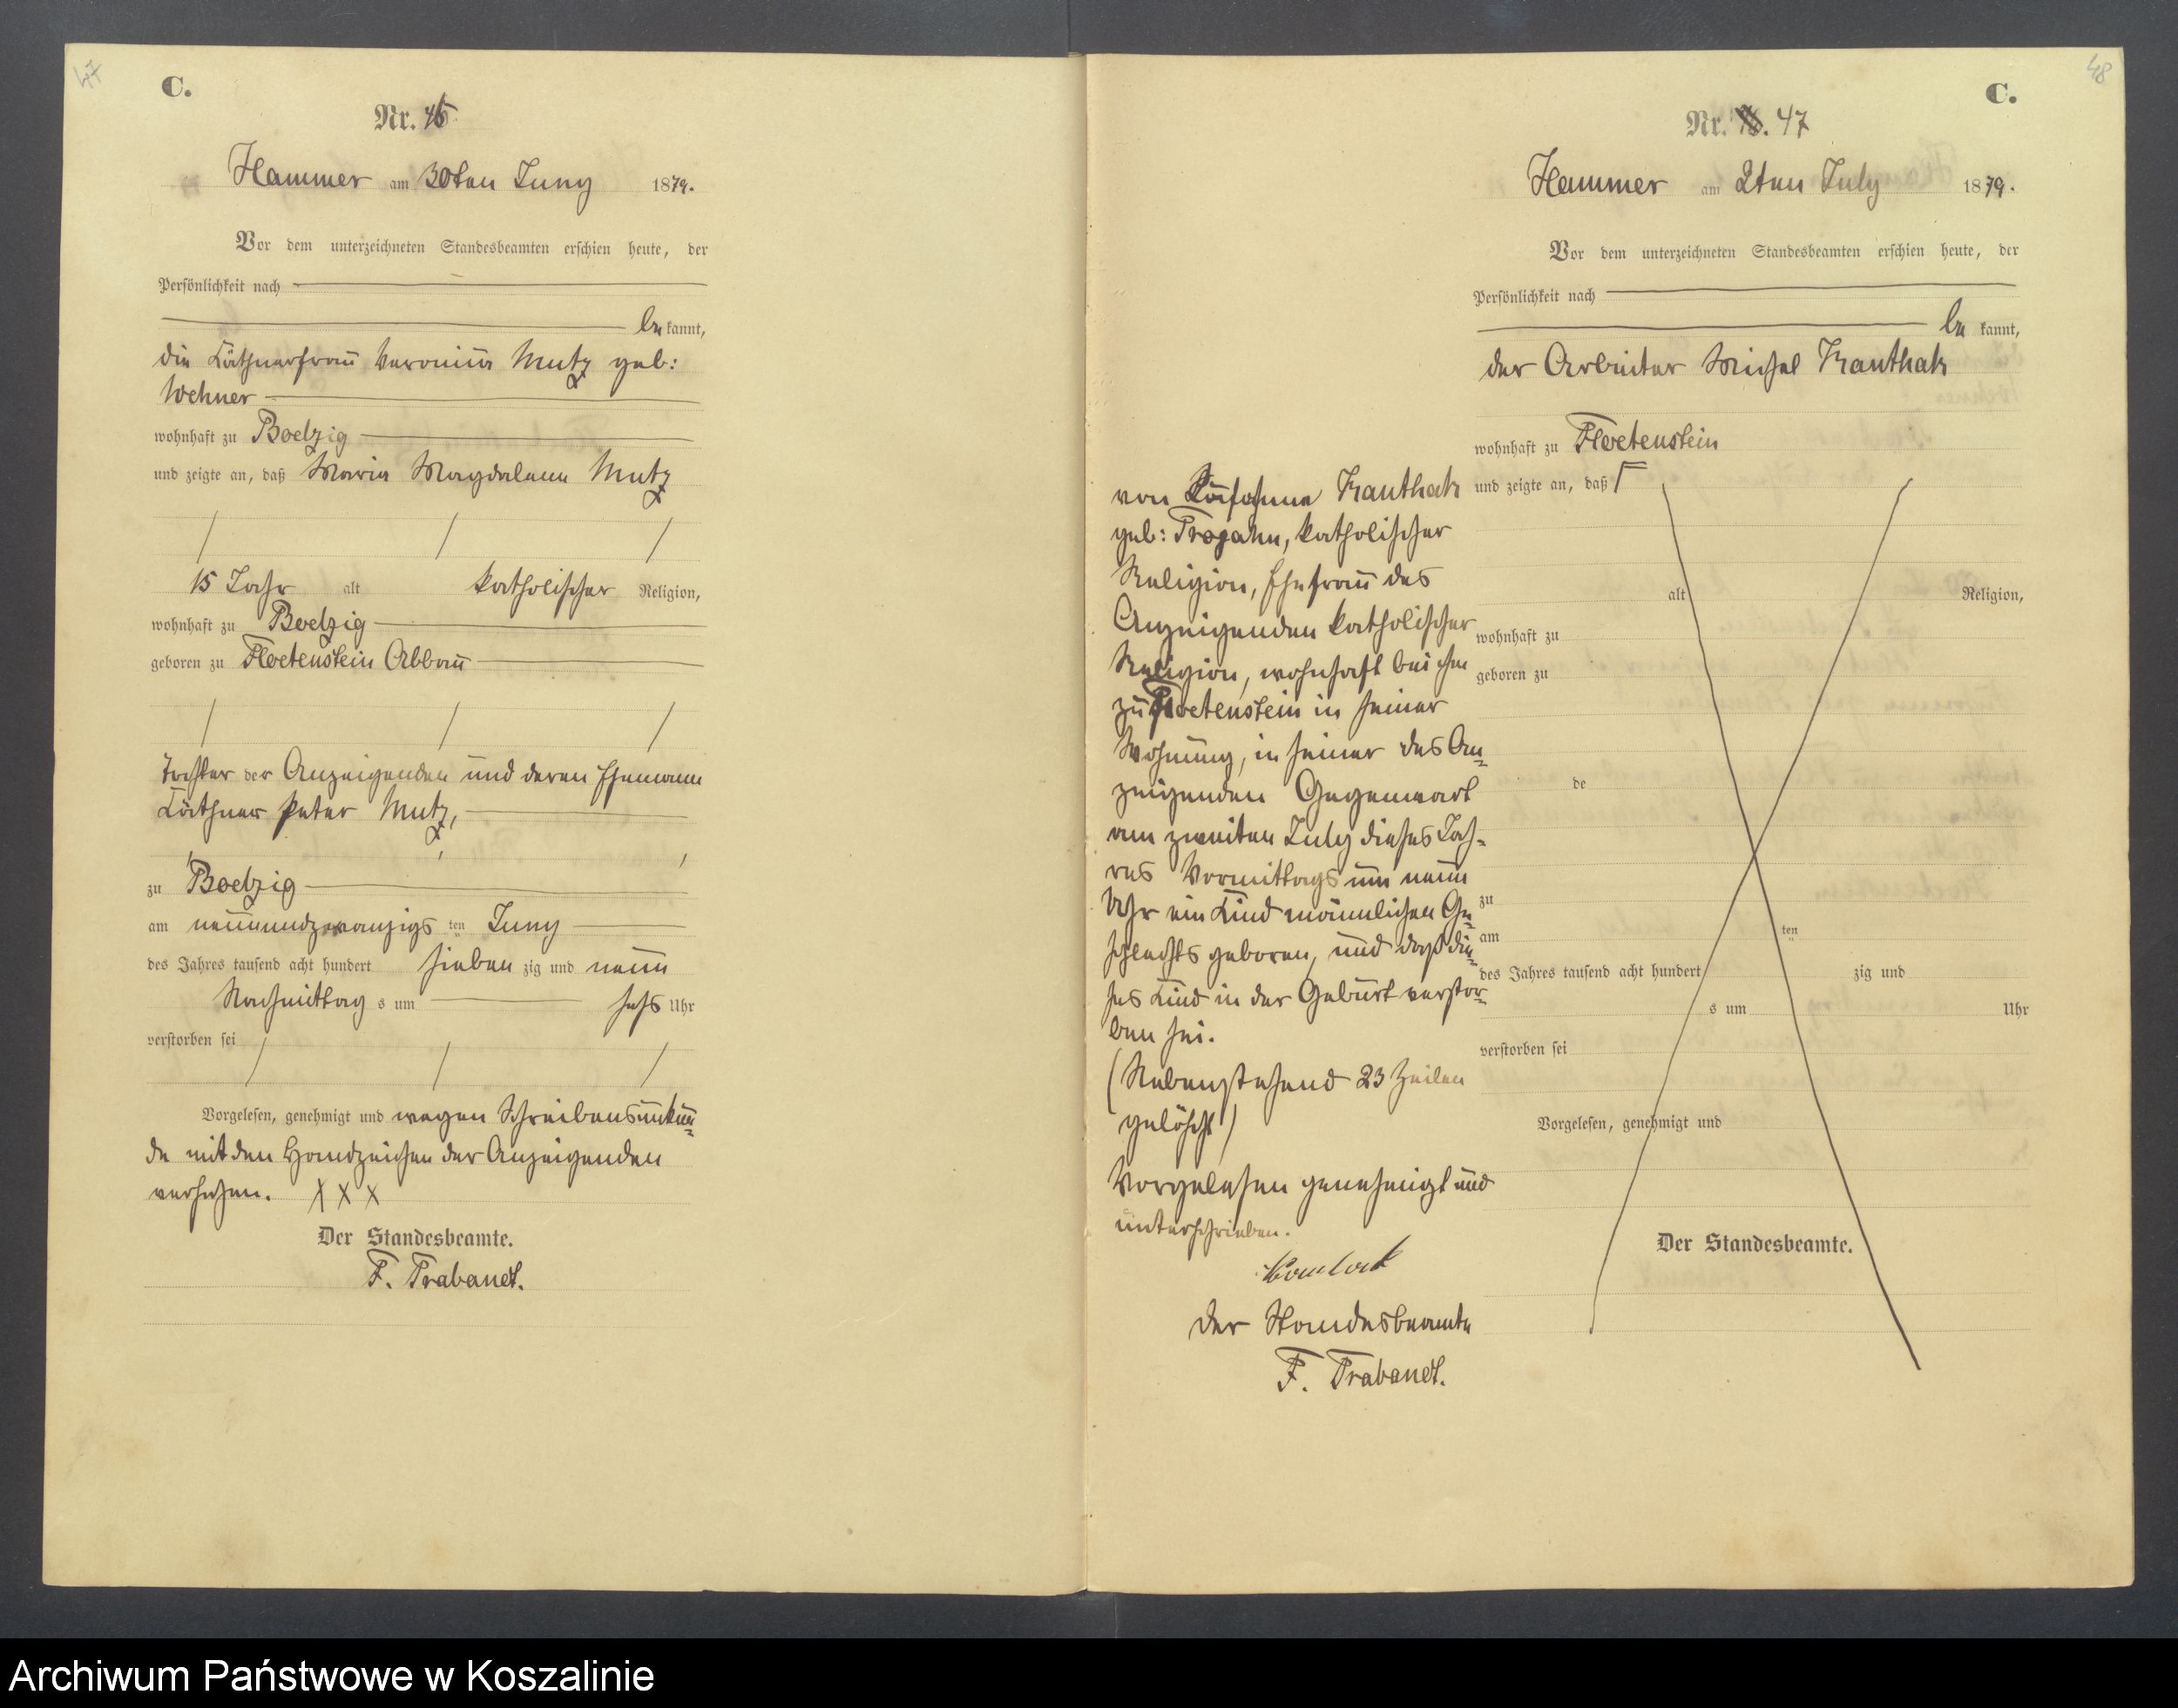 47
C.
Nr. 46
Hammer am 30ten Juny 1879.
Vor dem unterzeichneten Standesbeamten erschien heute, der
Persönlichkeit nach
be kannt,
die Käthnerfrau Veronica Mutz geb:
Wehner
wohnhaft zu Boelzig
und zeigte an, daß Maria Magdalena Mutz
15 Jahr alt katholischer Religion,
wohnhaft zu Boelzig
geboren zu Floetenstein Abbau
Tochter der Anzeigenden und deren Ehemann
Käthner Peter Mutz,
zu Boelzig
am neunundzwanzigs ten Juny
des Jahres tausend acht hundert sieben zig und neun
Nachmittag s um sechs Uhr
verstorben sei
Vorgelesen, genehmigt und wegen Schreibensunkun=
de mit den Handzeichen der Anzeigenden
versehen. X X X
Der Standesbeamte.
F. Trabandt.
48
C.
Nr. 47
Hammer am 2ten July 1879.
Vor dem unterzeichneten Standesbeamten erschien heute, der
Persönlichkeit nach
be kannt,
der Arbeiter Michel Kanthak
wohnhaft zu Floetenstein
und zeigte an, daß
alt Religion,
wohnhaft zu
geboren zu
de
zu
am ten
des Jahres tausend acht hundert zig und
s um Uhr
verstorben sei
Vorgelesen, genehmigt und
Der Standesbeamte.
von Kanthak
geb: Trojahn, katholischer
Religion, Ehefrau des
Anzeigenden katholischer
Religion, wohnhaft bei ihm
zu Floetenstein in seiner
Wohnung, in seiner des An=
zeigenden Gegenwart
am zweiten July dieses Jah=
res Vormittags um neun
Uhr ein Kind männlichen Ge=
schlechts geboren, und daß die=
ses Kind in der Geburt verstor=
ben sei.
(Nebenstehend 23 Zeilen
gelöscht)
Vorgelesen genehmigt und
unterschrieben.
Der Standesbeamte
F. Trabandt.
Archiwum Państwowe w Koszalinie